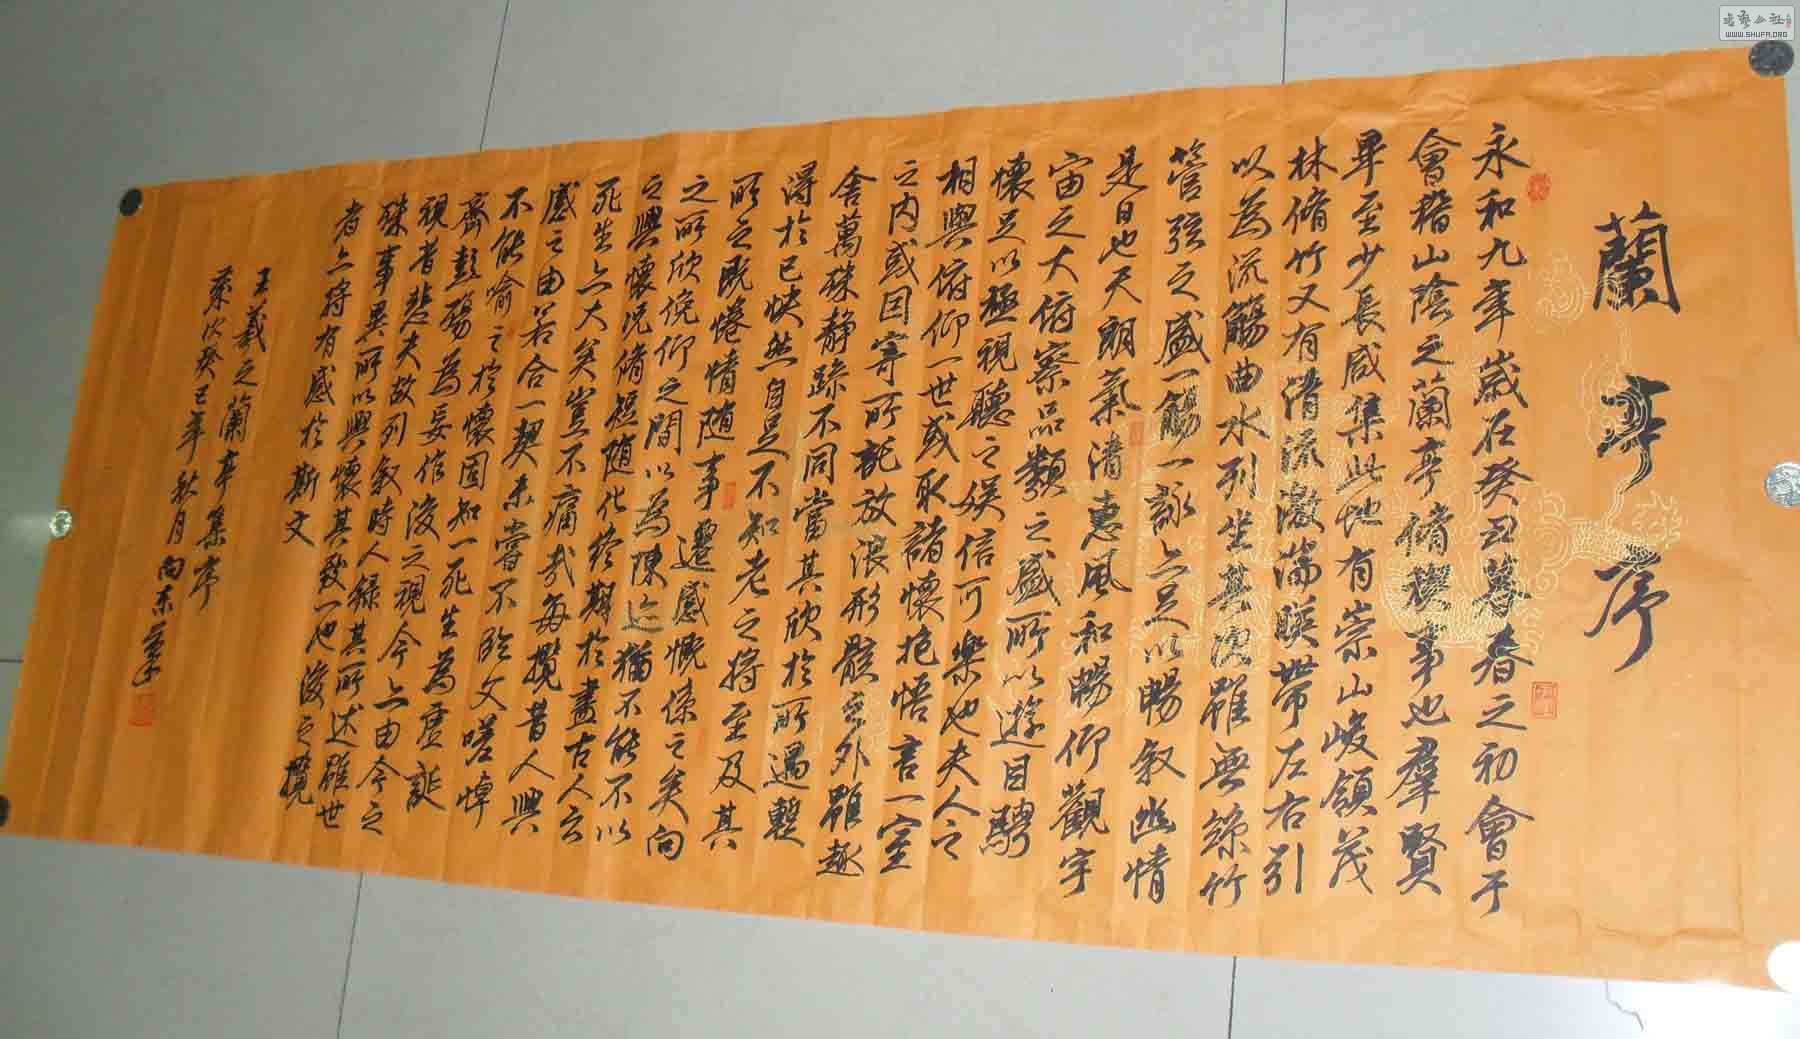 蘭亭序
永和九年歲在癸丑暮春之初會于
會稽山陰之蘭亭脩稧事也羣賢
畢至少長咸集此地有崇山峻領茂
林脩竹又有清流激湍暎帶左右引
以為流觴曲水列坐其次雖無絲竹
管弦之盛一觴一詠亦足以暢叙幽情
是日也天朗氣清惠風和暢仰觀宇
宙之大俯察品類之盛所以遊目騁
懷足以極視聽之娛信可樂也夫人之
相與俯仰一世或取諸懷抱悟言一室
之内或因寄所託放浪形骸之外雖趣
舍萬殊静躁不同當其欣於所遇暫
得於己快然自足不知老之將至及其
所之既惓情随事遷感慨係之矣向
之所欣俛仰之間以為陳迹猶不能不以
之興懷況脩短随化終期於盡古人云
死生亦大矣豈不痛哉每攬昔人興
感之由若合一契未嘗不臨文嗟悼
不能喻之於懷固知一死生為虛誕
齊彭殤為妄作後之視今亦由今之
視昔悲夫故列叙時人録其所述雖世
殊事異所以興懷其致一也後之攬
者亦將有感於斯文
王羲之蘭亭集序
歲次癸巳年秋月向東
書艺公社
WWW.SHUFA.ORG